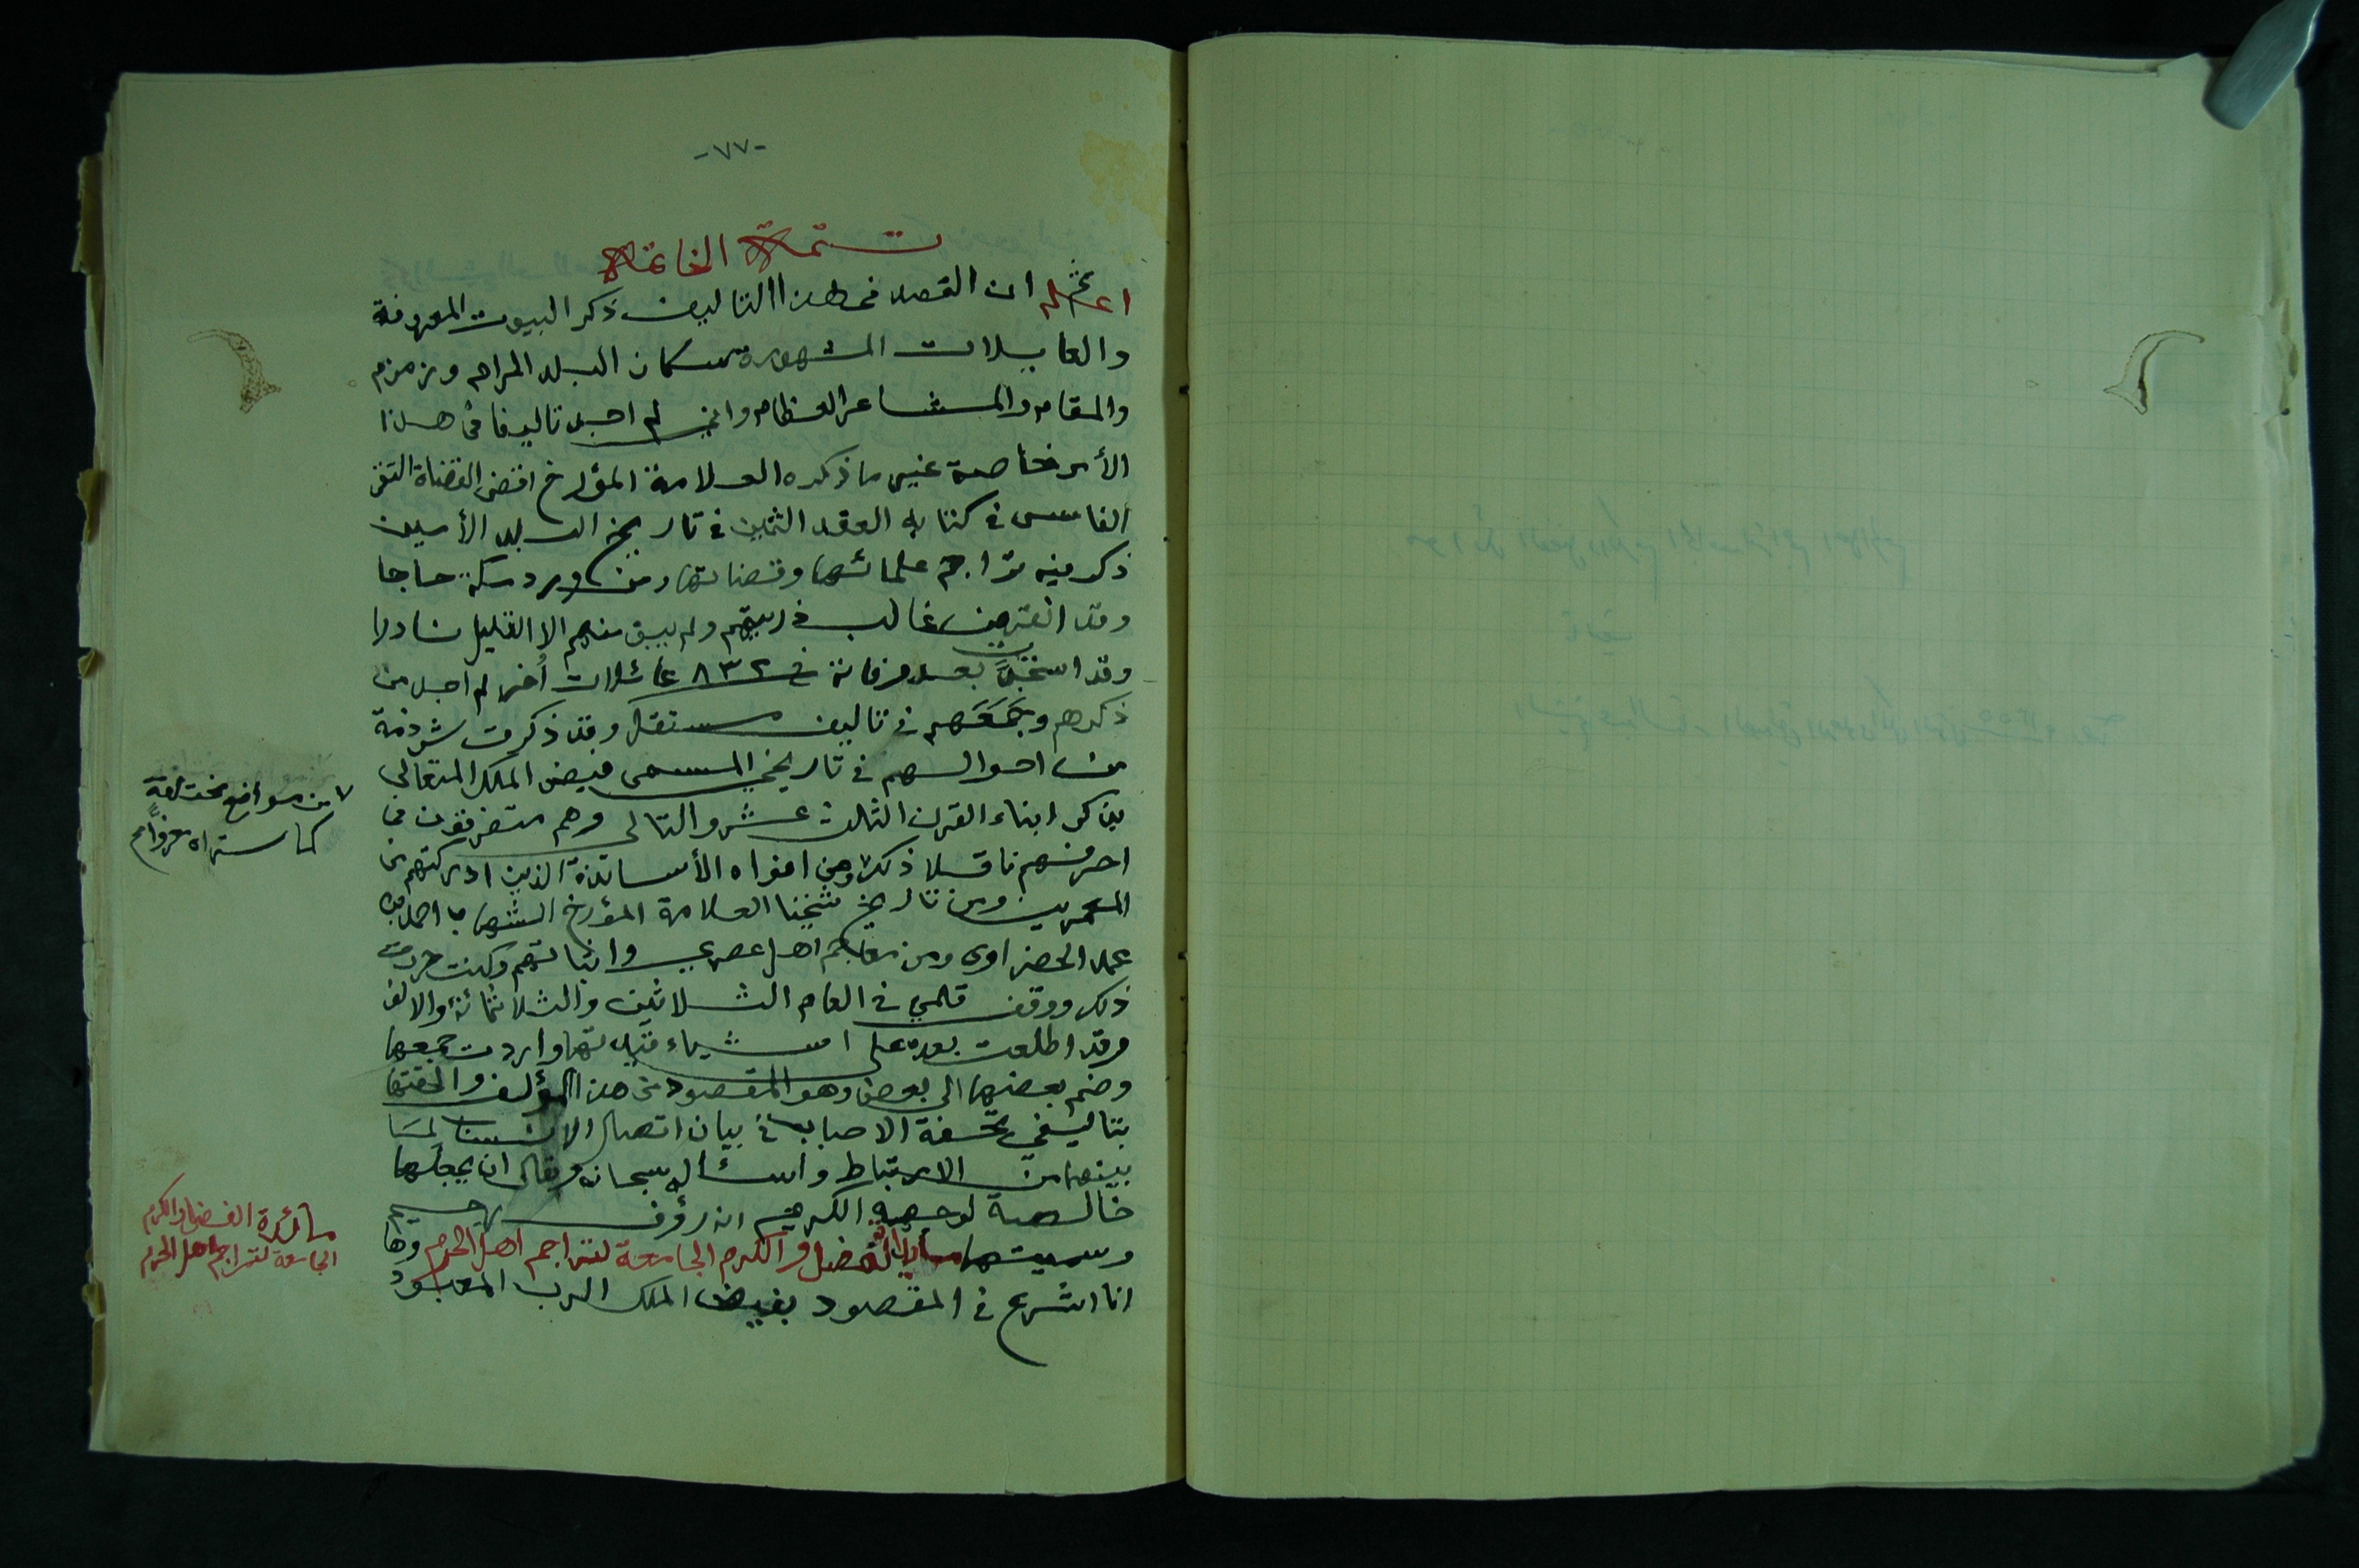 -٧٧-
تتمة الخاتمة
اعلم ان القصد في هذا التاليف ذكر البيوت المعروفة
والعايلات المشهورة سكان البلد الحرام وزمزم
والمقام والمشاعر العظام واني لم اجد تاليفا في هذا
الأمر خاصة غير ما ذكره العلامة المؤرخ اقضى القضاة التقي
الفاسي في كتابه العقد الثمين في تاريخ البلد الأمين
ذكر فيه تراجم علمائها وقضاتها ومن ورد مكة حاجا
وقد انقرض غالب ذريتهم ولم يبق منهم الا القليل نادرا
وقد استجدت بعد وفاته في ٨٣٢ عائلات أخر لم اجد من
ذكرهم وجمعهم في تاليف مستقل وقد ذكرت شرذمة
من احوالهم في تاريخي المسمى فيض الملك المتعالى
بذكر ابناء القرن الثالث عشر والتالى وهم متفرقون في
احرفهم ناقلا ذلك من افواه الأساتذة الذين ادركتهم من
المعمرين ومن تاريخ شيخنا العلامة المؤرخ الشهاب احمد بن
محمد الحضراوى ومن معاجم اهل عصري واثباتهم وكنت حررت
ذلك ووقف قلمي في العام الثلاثين والثلاثمائة والالف
وقد اطلعت بعده على اشياء قيدتها واردت جمعها
وضم بعضها الى بعض وهو المقصود من هذا المؤلف والحقتها
بتاليفي تحفة الاحباب في بيان اتصال الانساب لما
بينهما من الارتباط واسئال الله سبحانه وتعالى ان يجعلها
خالصة لوجهه الكريم انه رؤف رحيم
وسميتها مأيدة الفضل والكرم الجامعة لتراجم اهل الحرم وها
انا اشرع في المقصود بفيض الملك الرب المعبود
من مواضع مختلفة
كما ستراه معزوا
مائدة الفضل والكرم
الجامعة لتراجم اهل الحرم